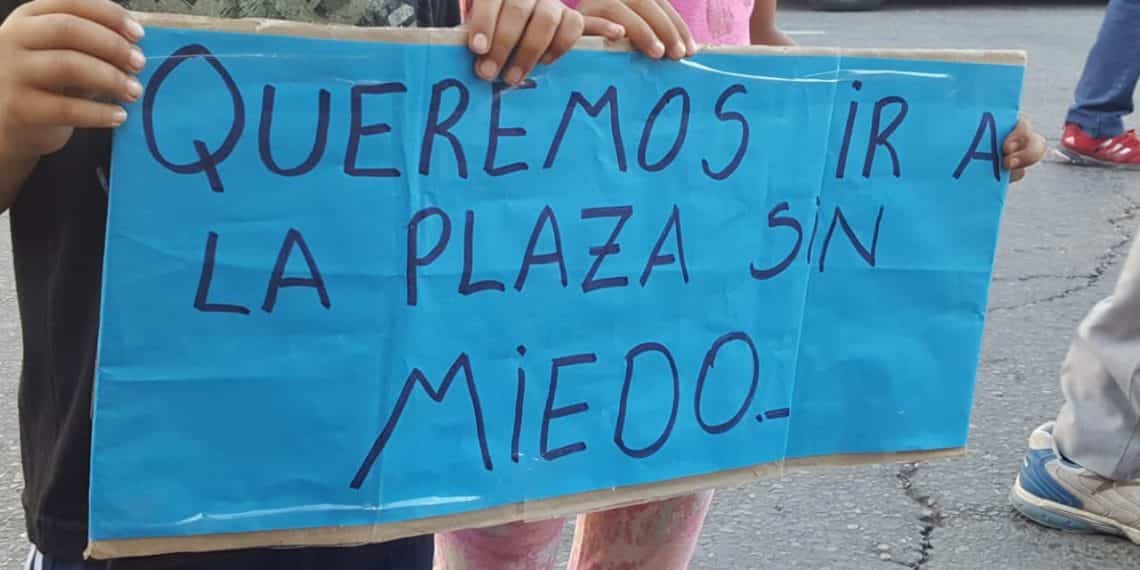 QUEREMOS iR A
LA PLAZA SiN
MiEDO.-